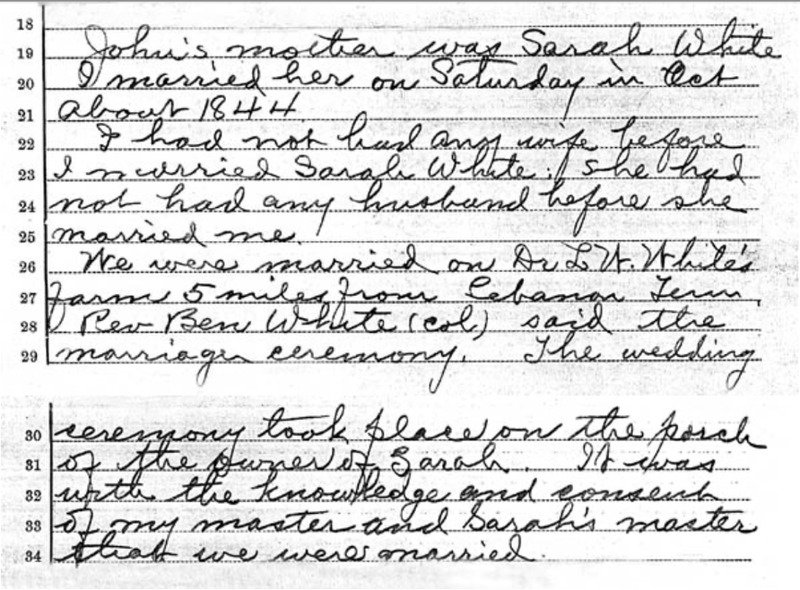 18
19 John's mother was Sarah White
20 I married her on Saturday in Oct
21 about 1844
22 I had not had any wife before
23 I married Sarah White. She had
24 not had any husband before she
25 married me.
26 We were married on Dr L W. White's
27 farm 5 miles from Lebanon Tenn.
28 Rev Ben White (col) said the
29 marriage ceremony. The wedding
30 ceremony took place on the porch
31 of the owner of Sarah. It was
32 with the knowledge and consent
33 of my master and Sarah's master
34 that we were married.